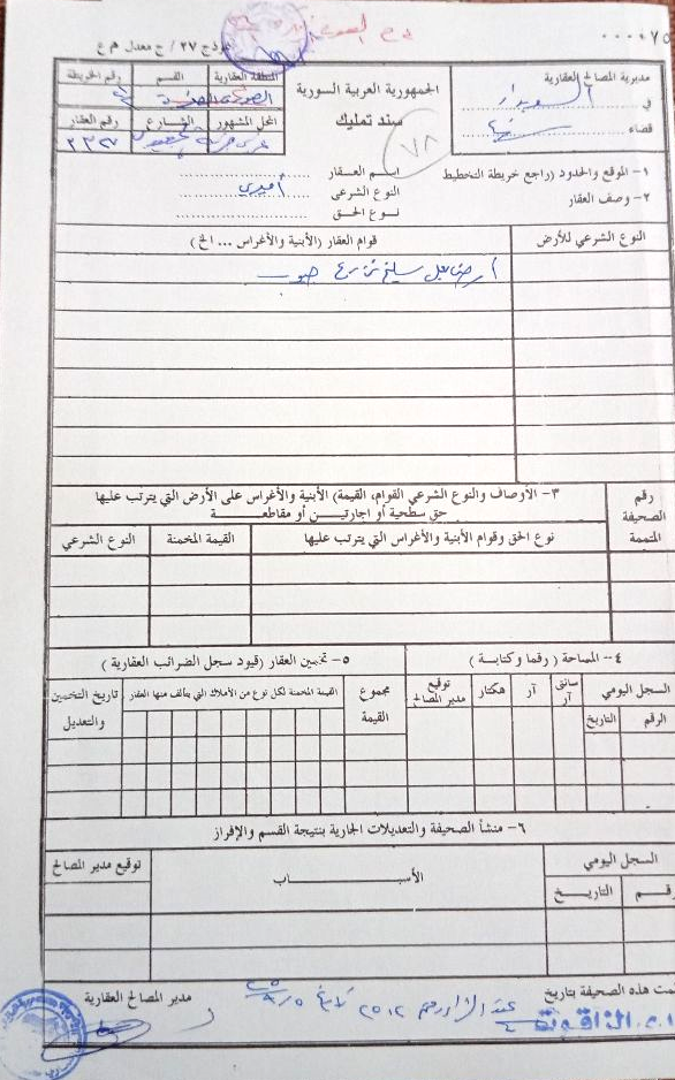 ٠٠٠٠٧٥
نموذج ٢٧ / ح معدل م ع
مديرية المصالح العقارية
في السويداء
قضاء
الجمهورية العربية السورية
سند تمليك
٧٨
المنطقة العقارية
القسم
رقم الخريطة
المحل المشهور
الشارع
رقم العقار
١- الموقع والحدود (راجع خريطة التخطيط
٢- وصف العقار
اسم العقار
النوع الشرعي أميري
نوع الحق
النوع الشرعي للأرض
قوام العقار (الأبنية والأغراس ... الخ)
أرض بعل سليخ تزرع حبوب
رقم الصحيفة المتممة
٣- الأوصاف والنوع الشرعي القوام، القيمة) الأبنية والأغراس على الأرض التي يترتب عليها
حق سطحية أو اجارتين أو مقاطعة
نوع الحق وقوام الأبنية والأغراس التي يترتب عليها
القيمة المخمنة
النوع الشرعي
٤- المساحة ( رقما وكتابة )
٥- تخمين العقار (قيود سجل الضرائب العقارية )
السجل اليومي
الرقم
التاريخ
سانتي آر
آر
هكتار
توقيع مدير المصالح
مجموع القيمة
القيمة المخمنة لكل نوع من الأملاك التي يتألف منها العقار
تاريخ التخمين والتعديل
٦- منشأ الصحيفة والتعديلات الجارية بنتيجة القسم والإفراز
السجل اليومي
رقم
التاريخ
الأسباب
توقيع مدير المصالح
تمت هذه الصحيفة بتاريخ
مدير المصالح العقارية